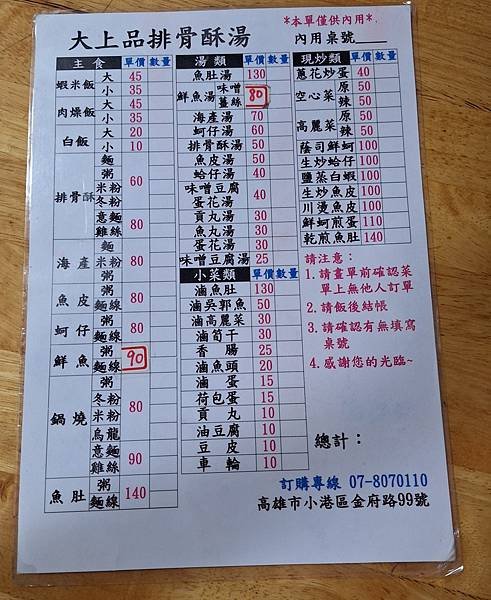 *本單僅供內用*
大上品排骨酥湯
內用桌號____
主食 單價 數量
蝦米飯 大 45
小 35
肉燥飯 大 45
小 35
白飯 大 20
小 10
排骨酥 麵 粥 米粉 冬粉 60
意麵 雞絲 80
海產 麵 米粉 粥 80
魚皮 粥 麵線 80
蚵仔 粥 麵線 80
鮮魚 粥 麵線 90
鍋燒 粥 冬粉 米粉 烏龍 80
意麵 雞絲 90
魚肚 粥 麵線 140
湯類 單價 數量
魚肚湯 130
鮮魚湯 味噌 薑絲 80
海產湯 70
蚵仔湯 60
排骨酥湯 50
魚皮湯 50
蛤仔湯 40
味噌豆腐蛋花湯 40
貢丸湯 30
魚丸湯 30
蛋花湯 30
味噌豆腐湯 25
小菜類 單價 數量
滷魚肚 130
滷吳郭魚 50
滷高麗菜 30
滷筍干 30
香腸 25
滷魚頭 20
滷蛋 15
荷包蛋 15
貢丸 10
油豆腐 10
豆皮 10
車輪 10
現炒類 單價 數量
蔥花炒蛋 40
空心菜 原 50
辣 50
高麗菜 原 50
辣 50
蔭司鮮蚵 100
生炒蛤仔 100
鹽蒸白蝦 100
生炒魚皮 100
川燙魚皮 100
鮮蚵煎蛋 110
乾煎魚肚 140
請注意：
1.請畫單前確認菜
單上無他人訂單
2.請飯後結帳
3.請確認有無填寫
桌號
4.感謝您的光臨~
總計：
訂購專線 07-8070110
高雄市小港區金府路99號